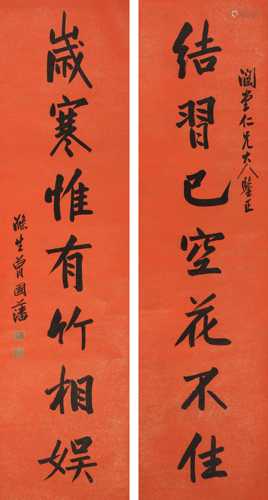 结習已空花不住
澗堂仁兄大人鑒正
歲寒惟有竹相娱
滌生曾國藩